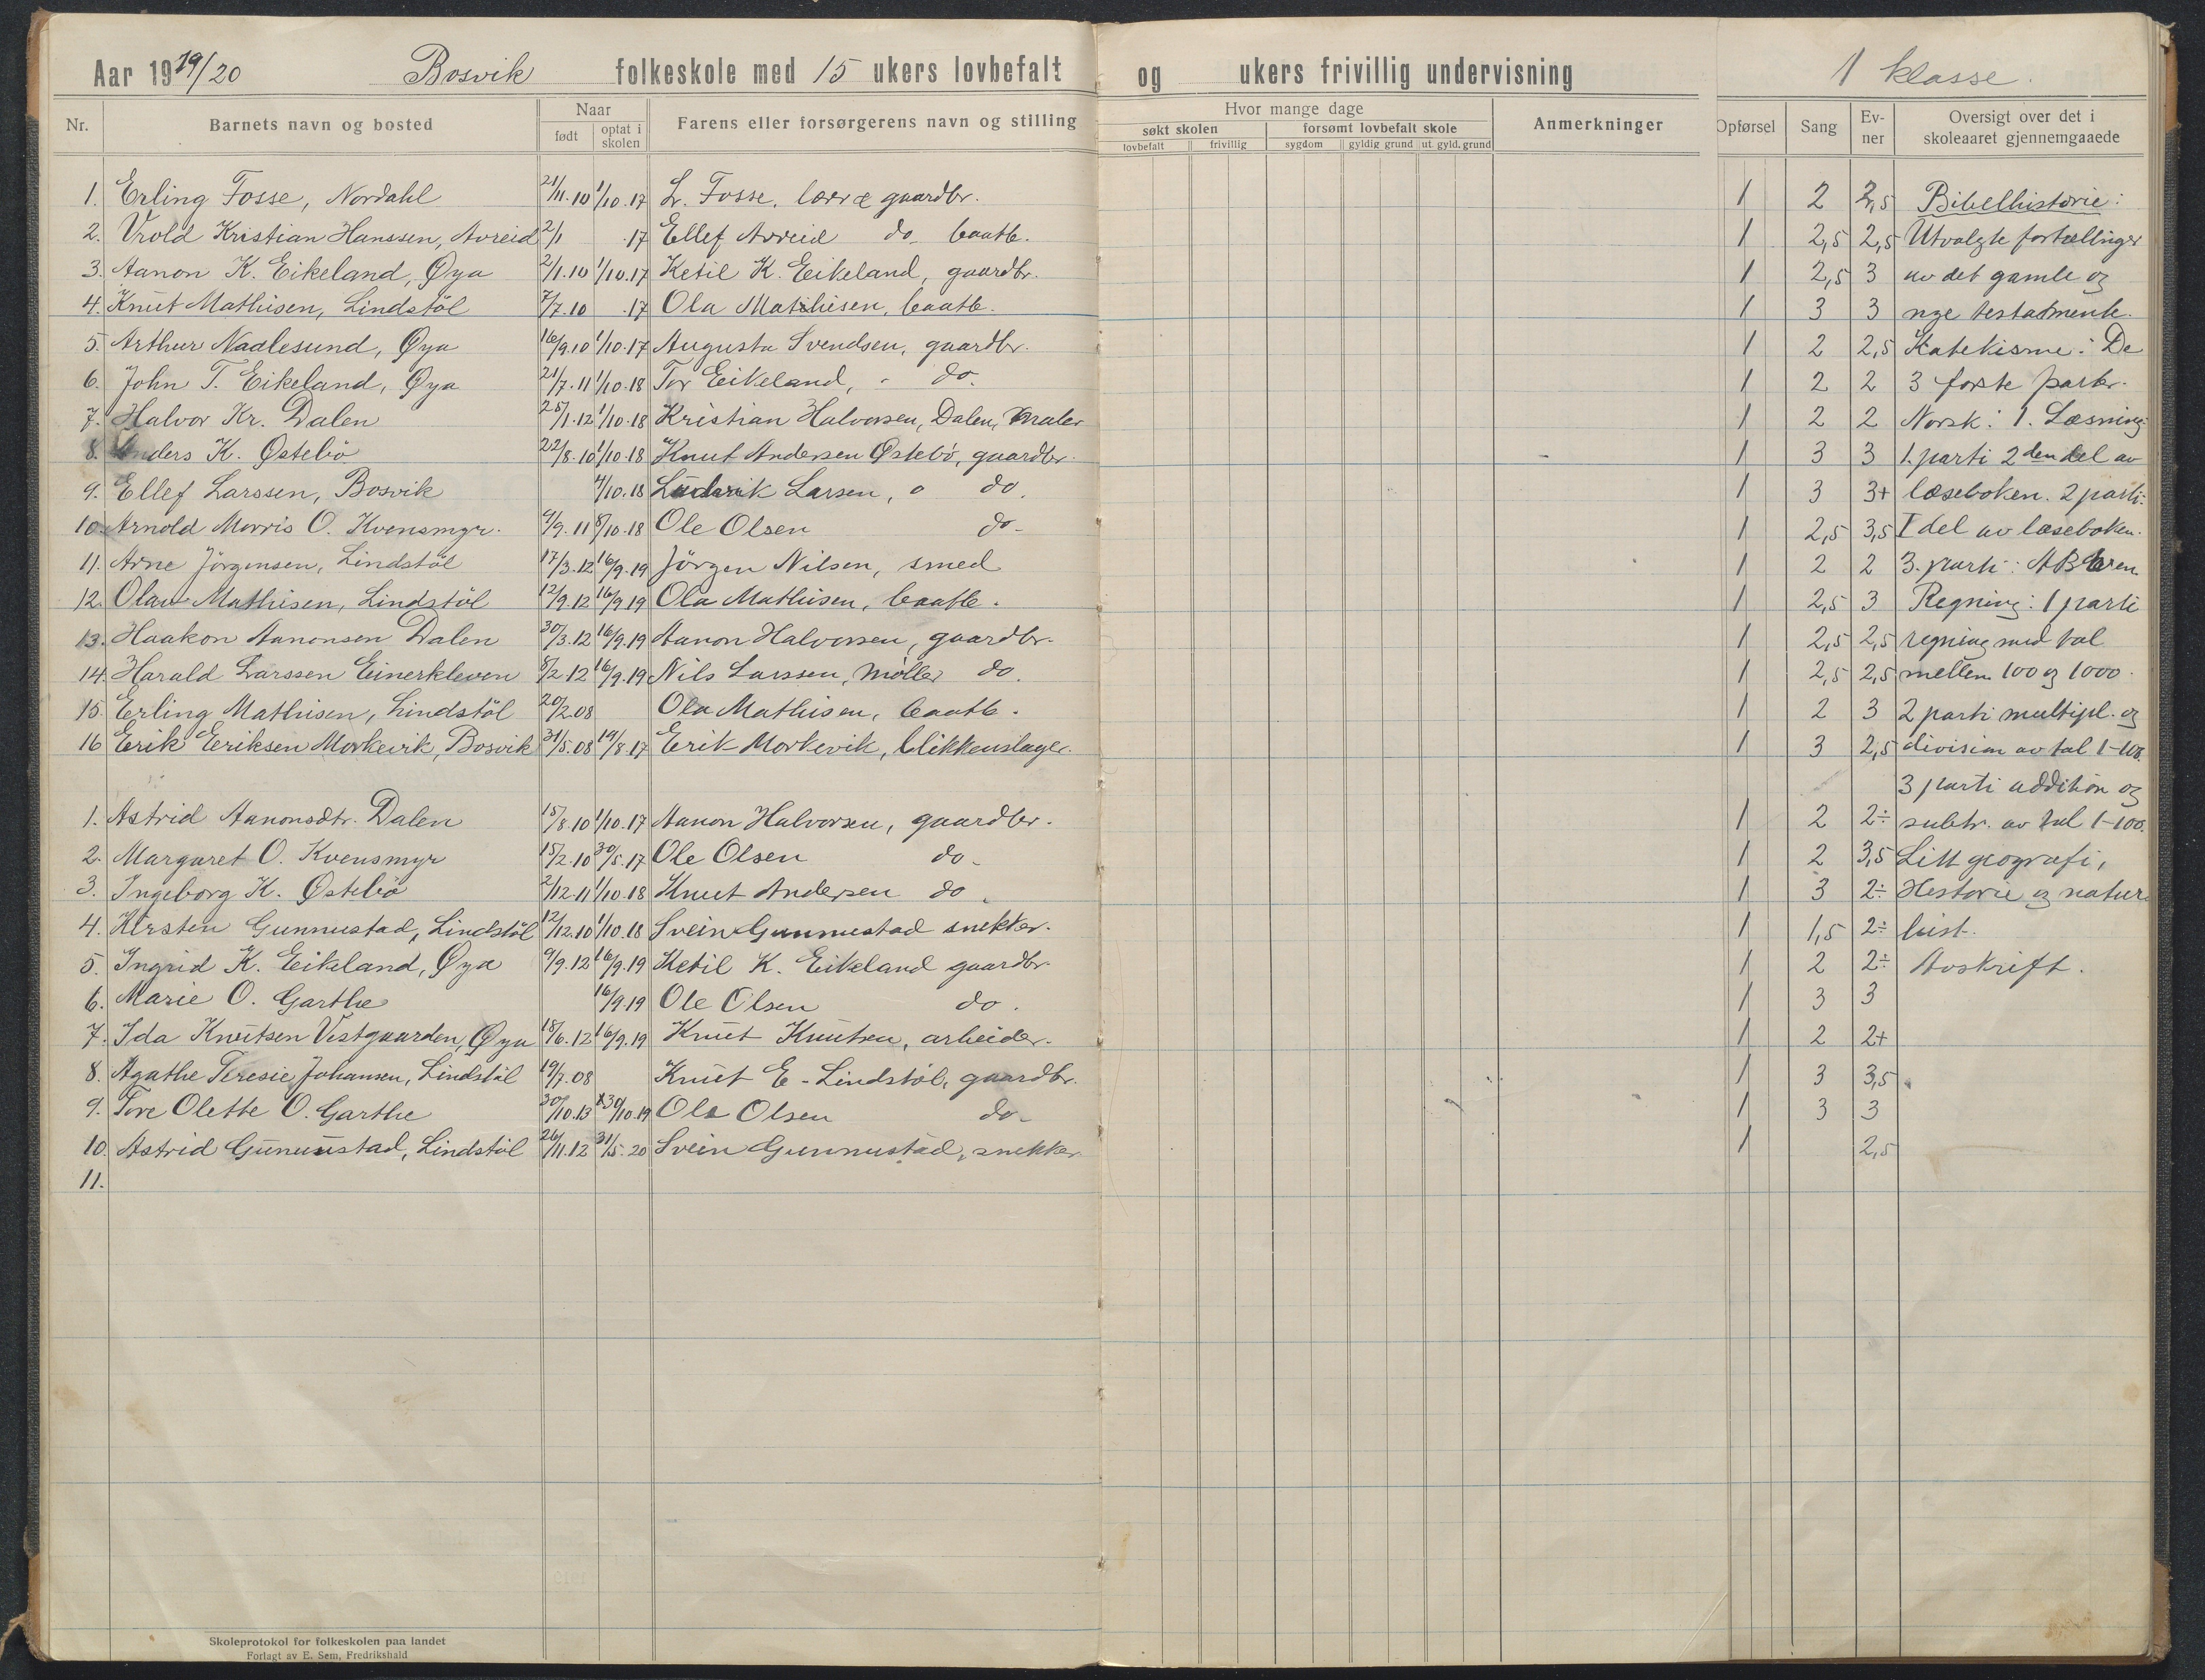 Aar 1919/20 Bosvik folkeskole med 15 ukers lovbefalt og ukers frivillig undervisning 1 klasse.
Nr. Barnets navn og bosted Naar født optat i skolen Farens eller forsørgerens navn og stilling Hvor mange dage søkt skolen lovbefalt frivillig forsømt lovbefalt skole sygdom gyldig grund ut. gyld. grund Anmerkninger Opførsel Sang Evner Oversigt over det i skoleaaret gjennemgaaede
1. Erling Fosse, Nordahl 21/11.10 1/10.17 L. Fosse, lærer gaardbr. 1 2 2,5 Bibelhistorie:
2. Vrold Kristian Hanssen, Avreid 2/1 .17 Ellef Avreid do baatb. 1 2,5 2,5 Utvalgte fortællinger
3. Aanon K. Eikeland, Øya 2/1.10 1/10.17 Ketil K. Eikeland, gaardbr. 1 2,5 3 av det gamle og
4. Knut Mathisen, Lindstöl 7/7.10 .17 Ola Mathisen, baatb. 1 3 3 nye testamente.
5. Arthur Nadlesund, Øya 16/9.10 1/10.17 Augusta Svendsen, gaardbr. 1 2 2,5 Katekisme: De
6. John T. Eikeland, Øya 21/7.11 1/10.18 Tor Eikeland, do. 1 2 2 3 første parter.
7. Halvor Kr. Dalen 25/1.12 1/10.18 Kristian Halvorsen, Dalen, maler 1 2 2 Norsk: 1. Læsning:
8. Anders K. Østebö 22/8.10 1/10.18 Knut Andersen Østebö, gaardbr. 1 3 3 1. parti 2den del av
9. Ellef Larssen, Bosvik 4/10.18 Larsen, do. 1 3 3+ læseboken. 2 parti:
10. Arnold Morris O. Kvensmyr. 9/9.11 8/10.18 Ole Olsen do 1 2,5 3,5 I del av læseboken.
11. Arne Jörgensen, Lindstöl 17/3.12 16/9.19 Jörgen Nilsen, smed 1 2 2 3. parti: ABCeen.
12. Olav Mathisen, Lindstöl 12/9.12 16/9.19 Ola Mathisen, baatb. 1 2,5 3 Regning: 1 parti
13. Haakon Aanonsen Dalen 30/3.12 16/9.19 Aanon Halvorsen, gaardbr. 1 2,5 2,5 regning med tal
14. Harald Larssen Einerkleven 8/2.12 16/9.19 Nils Larssen, møller do. 1 2,5 2,5 mellem 100 og 1000.
15. Erling Mathisen, Lindstöl 20/2.08 Ola Mathisen, baatb. 1 2 3 2 parti multipl. og
16 Erik Eriksen Morkevik, Bosvik 31/5.08 19/8.17 Erik Morkevik, blikkenslager. 1 3 2,5 division av tal 1-100.
3 parti addition og
1. Astrid Aanonsdtr. Dalen 15/8.10 1/10.17 Aanon Halvorsen, gaardbr. 1 2 2÷ subtr. av tal 1-100.
2. Margaret O. Kvensmyr 15/2.10 30/5.17 Ole Olsen do 1 2 3,5 Litt geografi,
3. Ingeborg K. Østebö 2/12.11 1/10.18 Knut Andersen do 1 3 2÷ Historie og natur
4. Kirsten Gunnustad, Lindstöl 12/12.10 1/10.18 Svein Gunnustad snekker. 1 1,5 2÷ hist.
5. Ingrid K. Eikeland, Øya 9/9.12 16/9.19 Ketil K. Eikeland gaardbr. 1 2 2÷ Avskrift.
6. Marie O. Garthe 16/9.19 Ole Olsen do. 1 3 3
7. Ida Knutsen Vestgaarden, Øya 18/6.12 16/9.19 Knut Knutsen, arbeider. 1 2 2+
8. Agathe Teresie Johansen, Lindstöl 19/7.08 Knut E. Lindstöl, gaardbr. 1 3 3,5
9. Tore Olette O. Garthe 30/10.13 30/10.19 Ole Olsen do 1 3 3
10. Astrid Gunnustad, Lindstöl 26/11.12 31/5.20 Svein Gunnustad, snekker 1 2,5
11.
Skoleprotokol for folkeskolen paa landet
Forlagt av E. Sem, Fredrikshald